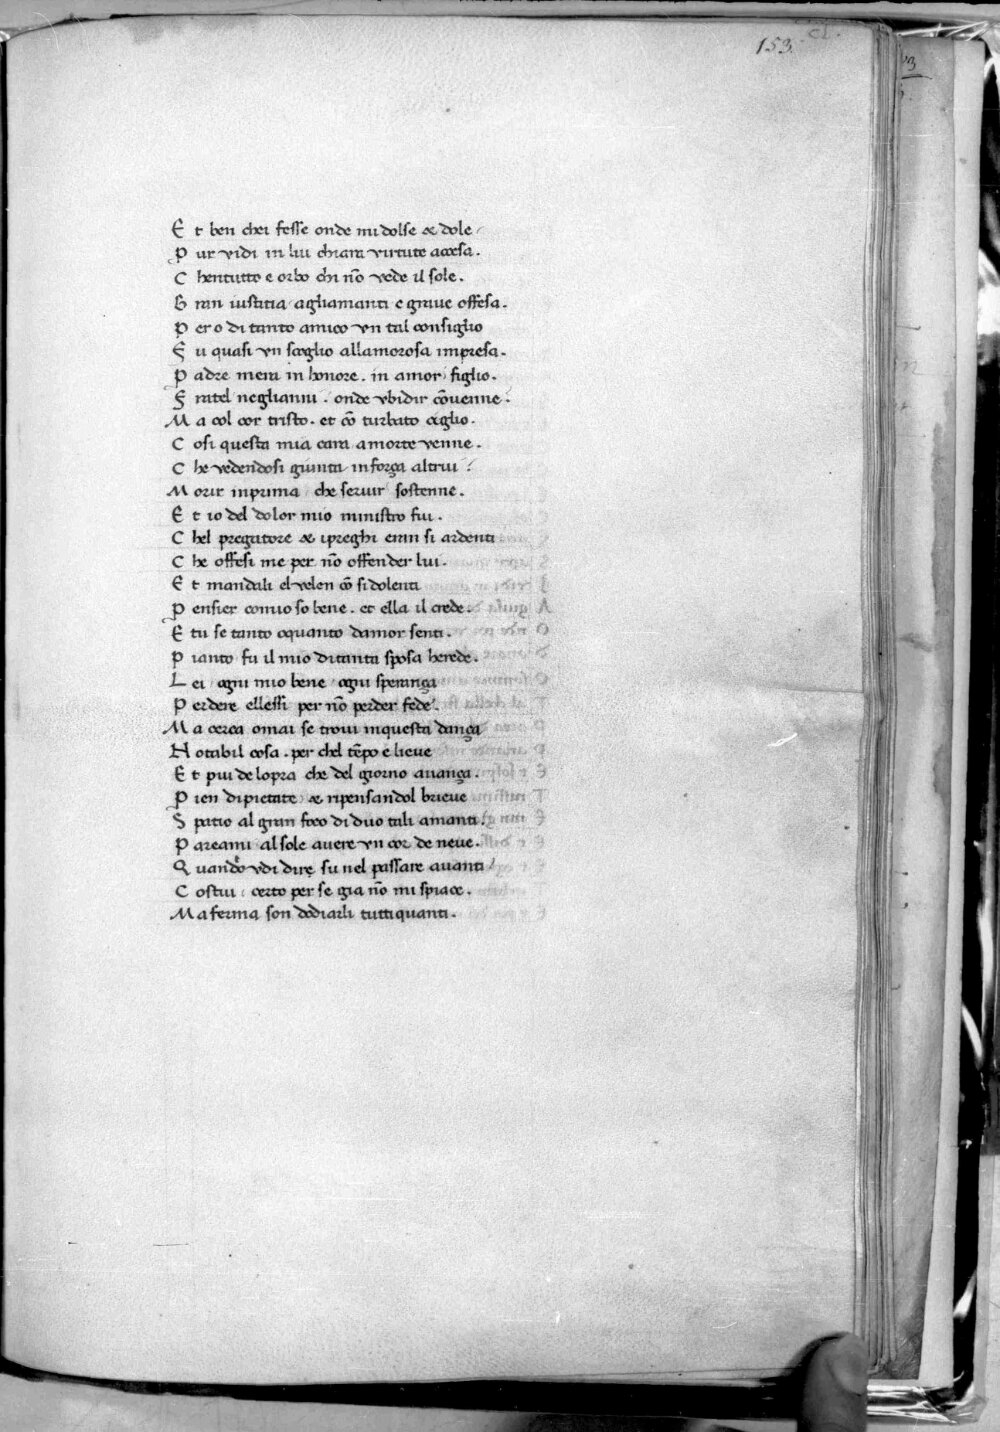 153. CL.
Et ben chei fesse onde mi dolse & dole
Pur vidi in lui chiara virtute accesa.
Chentutto e orbo chi nõ vede il sole.
Gran iustitia agliamanti e grave offesa.
Pero di tanto amico vn tal consiglio
Fu quasi vn scoglio allamorosa impresa.
Padre mera in honore. in amor figlio.
Fratel neglianni. onde vbidir cõuenne.
Ma col cor tristo. et cõ turbato ciglio.
Cosi questa mia cara a morte venne.
Che vedendosi giunta in força altrui
Morir inprima che seruir sostenne.
Et io del dolor mio ministro fui.
Chel pregatore & ipreghi eran si ardenti
Che offesi me per nõ offender lui.
Et mandali el velen cõ si dolenti
Pensier comio so bene. et ella il crede.
E tu se tanto oquanto damor senti.
Pianto fu il mio ditanta sposa herede.
Lei ogni mio bene ogni sperança
Perdere ellessi per nõ perder fede.
Ma cerca omai se troui inquesta dança
Notabil cosa. per chel tẽpo e lieue
Et piu de lopra che del giorno auança.
Pien dipietate & ripensandol brieue
Spatio al gran foco di duo tali amanti.
Pareami al sole auere vn cor de neue.
Quando vdi dire su nel passare auanti
Costui certo per se gia nõ mi spiace.
Ma ferma son dodiarli tuttiquanti.